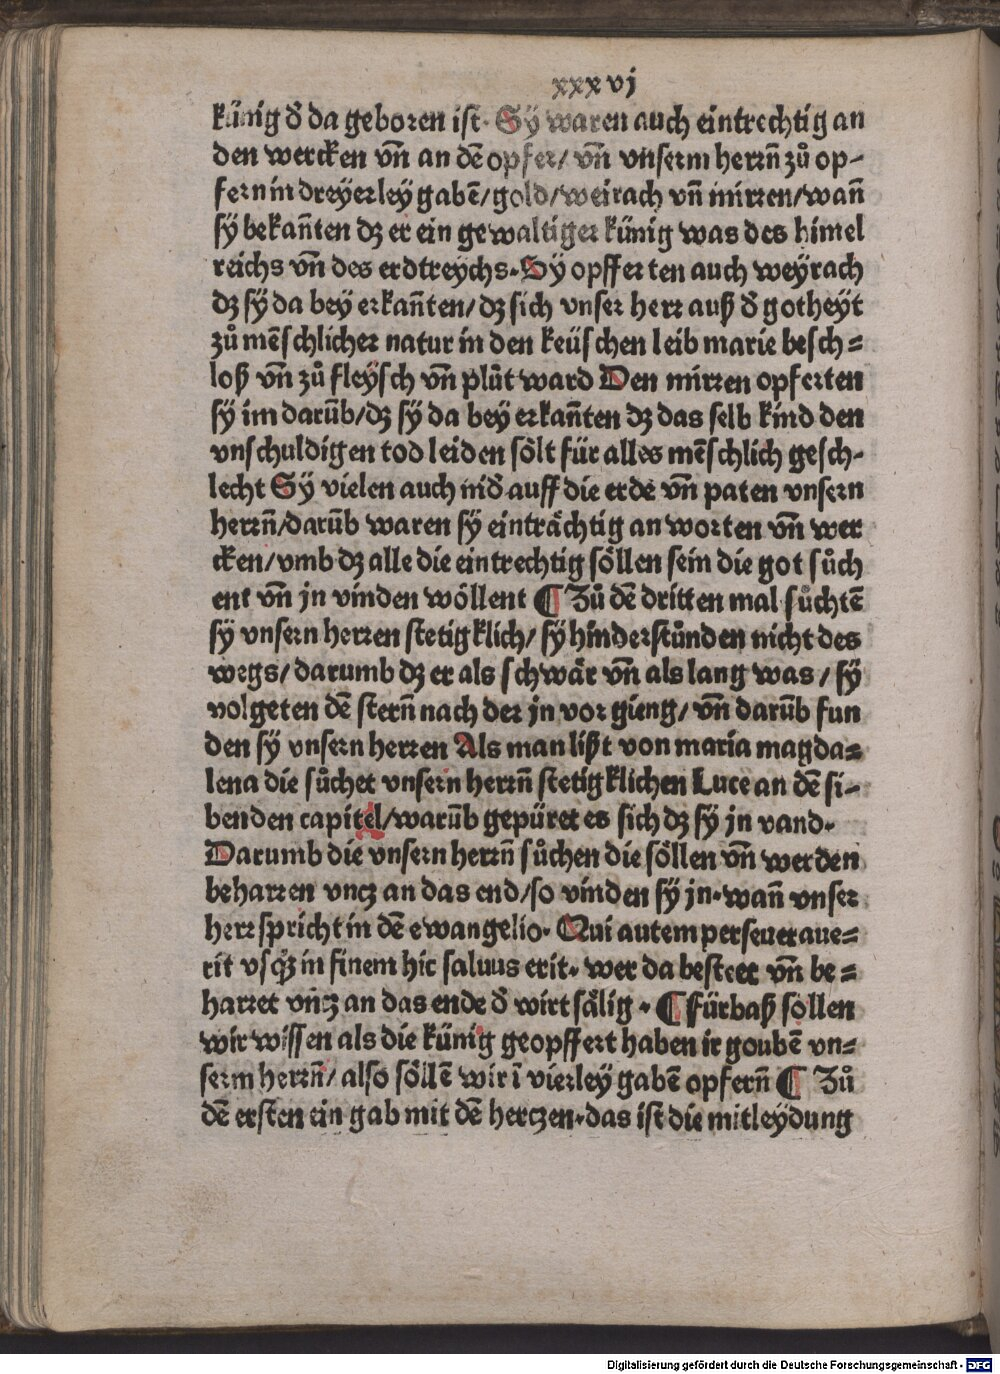 xxxvj
künig d̄ da geboren ist· Sÿ waren auch eintrechtig an
den wercken vn̄ an dē opfer/ vn̄ vnserm herrn̄ zů op-
fern in dreyerley gabē/gold/weirach vn̄ mirren/wan̄
sÿ bekan̄ten dz er ein gewaltiger künig was des himel
reichs vn̄ des erdtreychs· Sÿ opfferten auch weÿrach
dz sÿ da beÿ erkan̄ten/dz sich vnser herr auß d̄ gotheÿt
zů mēschlicher natur in den keüschen leib marie besch=
loß vn̄ zů fleÿsch vn̄ plůt ward Den mirren opferten
sÿ im darūb/dz sÿ da beÿ erkan̄ten dz das selb kind den
vnschuldigen tod leiden sölt für alles mēschlich gesch-
lecht Sÿ vielen auch nid̄ auff die erde vn̄ paten vnsern
herrn̄/darūb waren sÿ einträchtig an worten vn̄ wer
cken/vmb dz alle die eintrechtig söllen sein die got sůch
ent vn̄ jn vinden wöllent ¶ Zů dē dritten mal sůchtē
sÿ vnsern herren stetigklich/ sÿ hinderstůnden nicht des
wegs/darumb dz er als schwär vn̄ als lang was/ sÿ
volgeten dē stern̄ nach der jn vor gieng/ vn̄ darūb fun
den sÿ vnsern herren Als man lißt von maria magda=
lena die sůchet vnsern herrn̄ stetigklichen Luce an dē si-
benden capitel/warūb gepüret es sich dz sÿ jn vand·
Darumb die vnsern herrn̄ sůchen die söllen vn̄ werden
beharren vncz an das end/so vinden sÿ jn·wan̄ vnser
herr spricht in dē ewangelio· Qui autem perseueraue=
rit vsqz in finem hic saluus erit· wer da besteet vn̄ be=
harret vncz an das ende d̄ wirt sälig· ¶ Fürbaß sollen
wir wissen als die künig geopffert haben ir goubē vn=
serm herrn̄/also söllē wir ī vierleÿ gabē opfern̄ ¶ Zů
dē ersten ein gab mit dē herczen·das ist die mitleÿdung
Digitalisierung gefördert durch die Deutsche Forschungsgemeinschaft - DFG